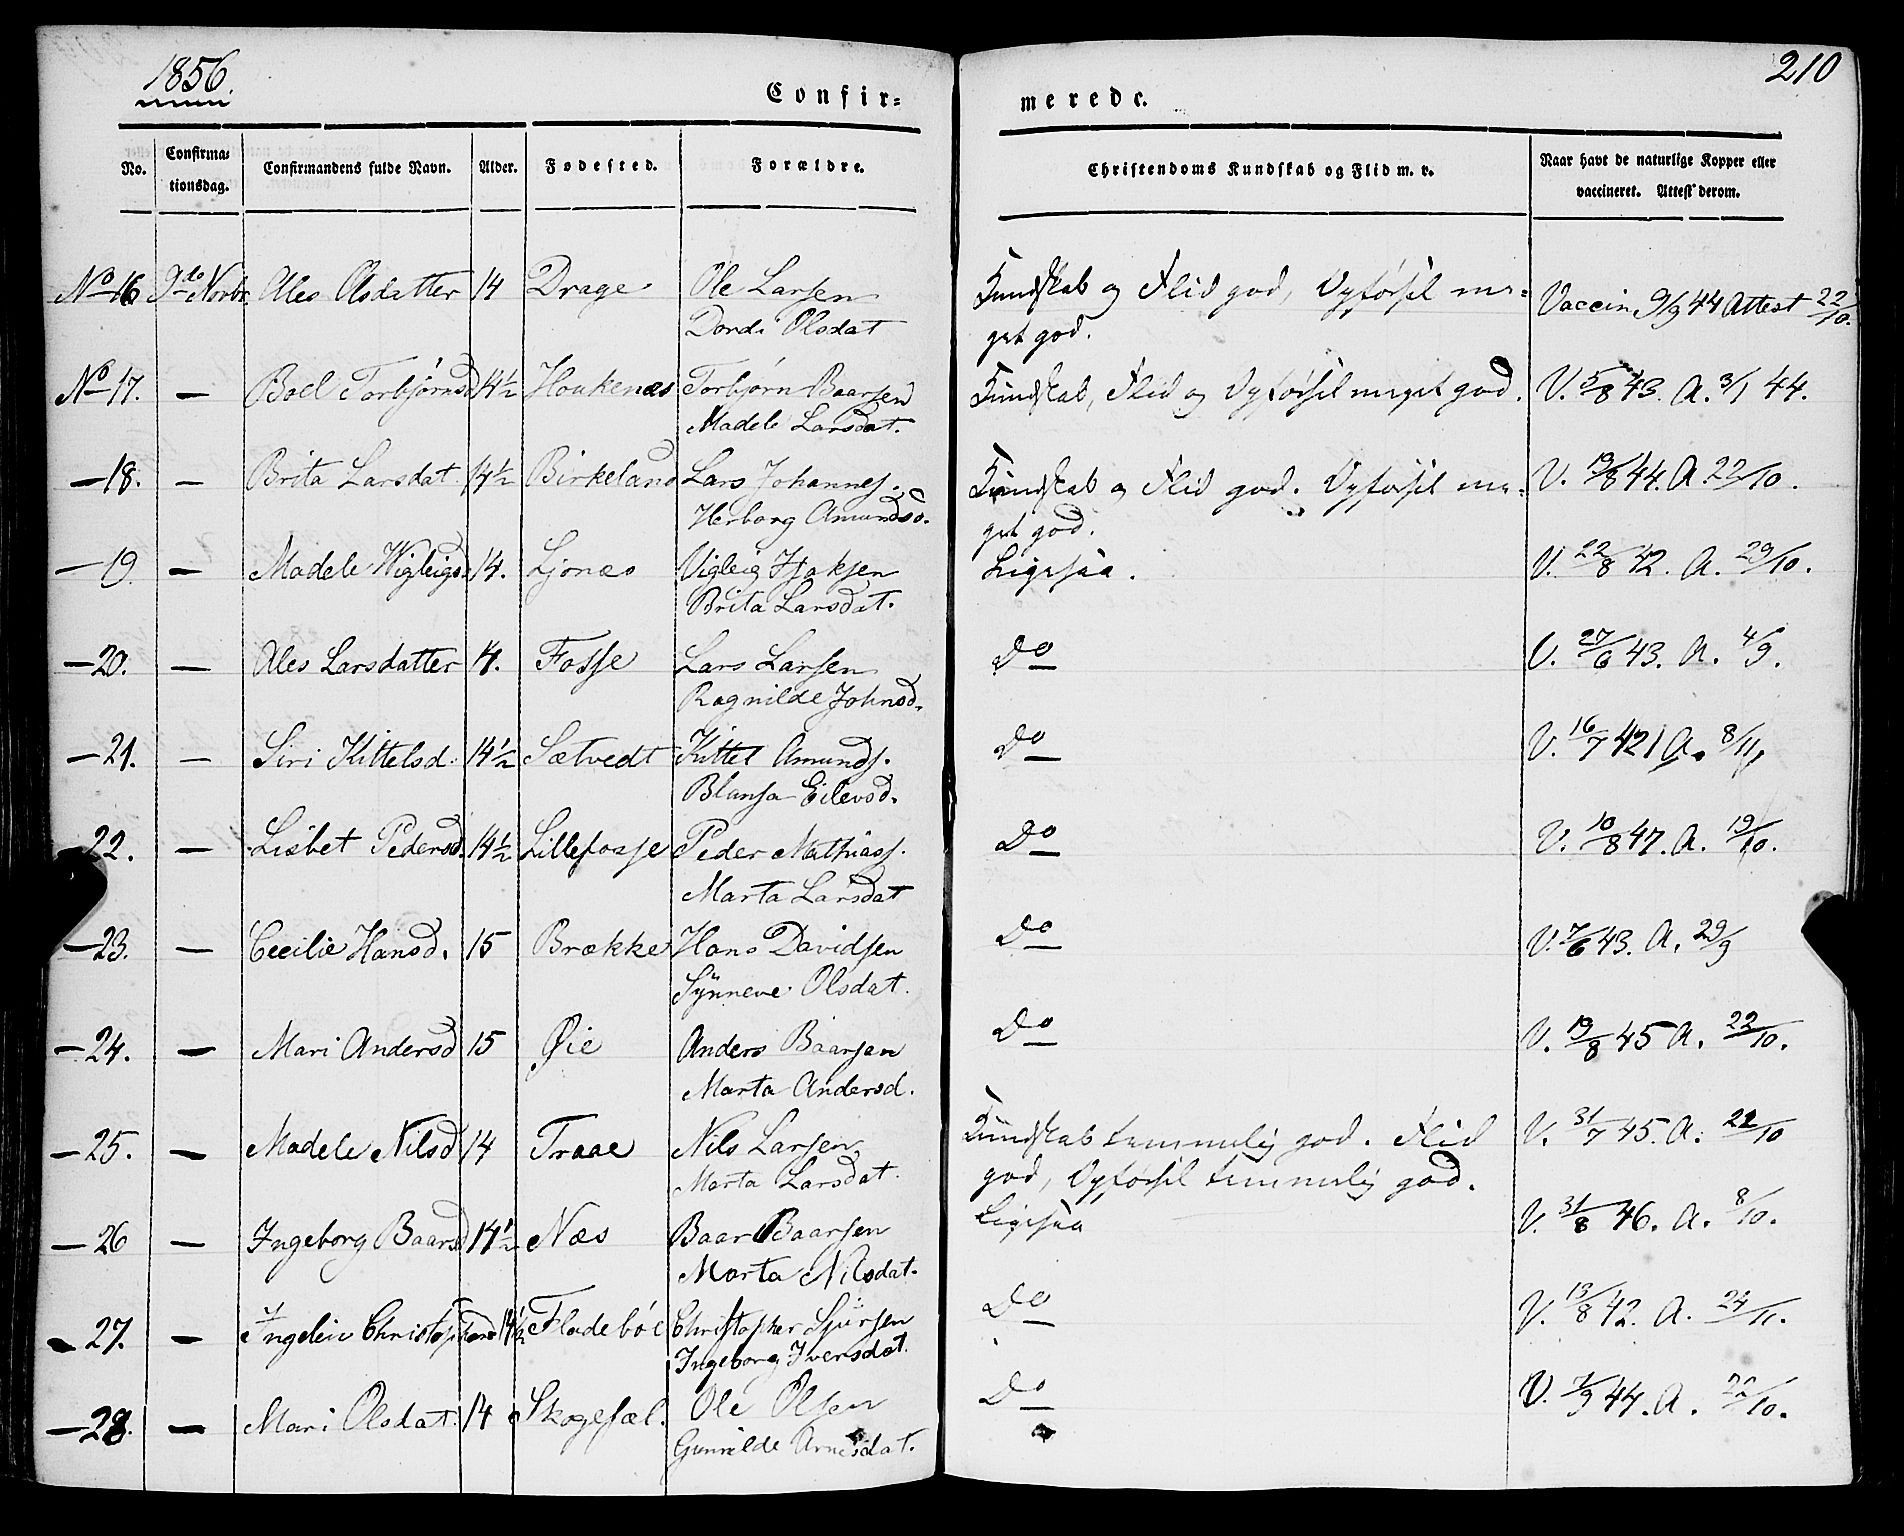 1856.
210
Confir=
merede.
No.
Confirma=
tionsdag.
Confirmandens fulde Navn.
Alder.
Fødested.
Forældre.
Christendoms Kundskab og Flid m. v.
Naar havt de naturlige Kopper eller
vaccineret. Attest derom.
No 16 9de Novbr. Ales Olsdatter 14 Drage Ole Larsen Kundskab og Flid god, Opførsel me= Vaccin 9/9 44 Attest 22/10.
Dordi Olsdat get god.
No 17. — Boel Torbjørnsd 14½ Houkenæs Torbjørn Baarsen Kundskab, Flid og Opførsel meget god. V. 5/8 43. A. 3/1 44.
Madele Larsdat.
—18. — Brita Larsdat. 14½ Birkeland Lars Johannes. Kundskab og Flid god. Opførsel me= V. 19/8 44. A. 22/10.
Herborg Amundsd. get god.
—19. — Madele Wigleigs 14. Ljonæs Vigleig Isaksen Ligesaa. V. 22/8 42. A. 29/10.
Brita Larsdat.
—20. — Ales Larsdatter 14. Fosse Lars Larsen Do V. 27/6 43. A. 4/9.
Ragnilde Johnsd.
—21. — Siri Kittelsd. 14½ Sætvedt Kittel Amunds. Do V. 16/7 42 A. 8/11
Blansa Eilevsd.
—22. — Lisbet Pedersd. 14½ Lillefosse Peder Mathias. Do V. 10/8 47. A. 19/10.
Marta Larsdat
—23. — Cecilie Hansd. 15 Brække Hans Davidsen Do V. 7/6 43. A. 29/9
Synneve Olsdat.
—24. — Mari Andersd 15 Øie Anders Baarsen Do V. 19/8 45 A. 22/10.
Marta Andersd.
—25. — Madele Nilsd 14 Traae Nils Larsen Kundskab temmelig god. Flid V. 31/7 45. A. 22/10
Marta Larsdat. god, Opførsel temmelig god.
—26 — Ingeborg Baarsd 14½ Næs Baar Baarsen Ligesaa V. 31/8 46. A. 8/10.
Marta Nilsdat.
—27. — Christophers 14½ Fladebøe Christopher Sjursen Do V. 13/8 42. A. 24/11.
Ingeborg Iversdat.
—28. — Mari Olsdat. 14 Skogesæl. Ole Olsen Do V. 7/9 44. A. 22/10.
Gunnilde Arnesdat.